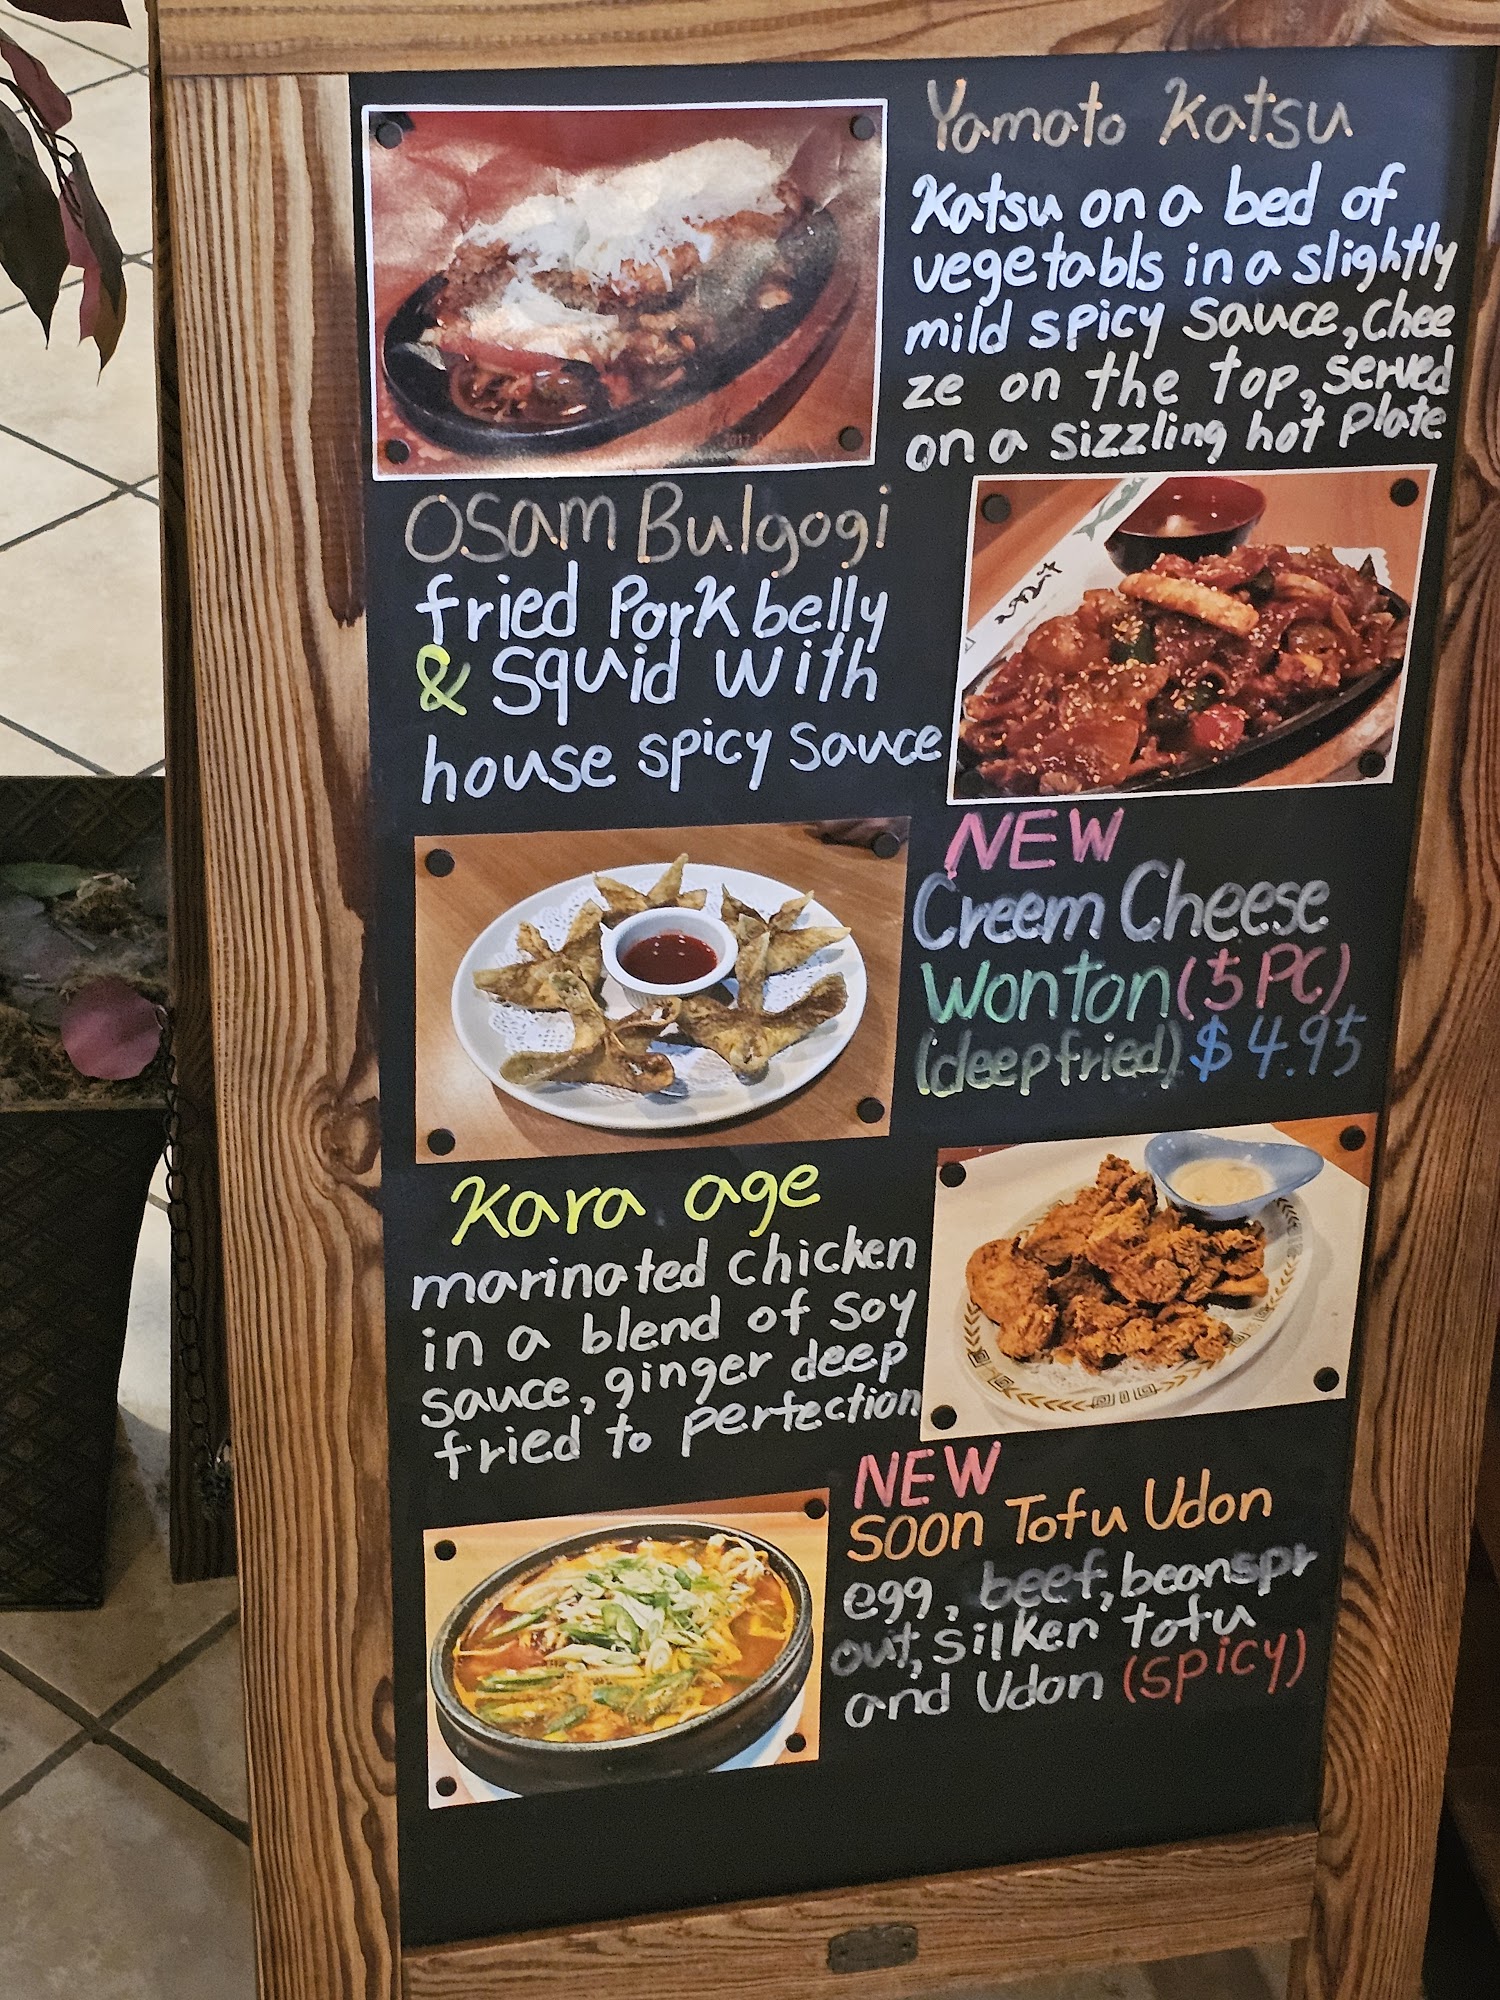 Yamato Katsu
Katsu on a bed of
vegetabls in a slightly
mild spicy sauce, chee
ze on the top, served
on a sizzling hot plate
OSAM Bulgogi
fried Pork belly
& squid with
house spicy sauce
NEW
Creem Cheese
Wonton (5 PC)
(deep fried) $4.95
Kara age
marinated chicken
in a blend of soy
sauce, ginger deep
fried to perfection
NEW
SOON Tofu Udon
egg, beef, beanspr
out, silken tofu
and Udon (spicy)